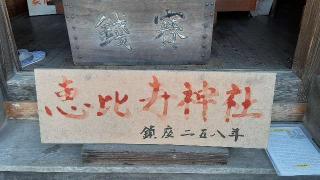 賽錢
恵比寿神社
鎮座二五八年